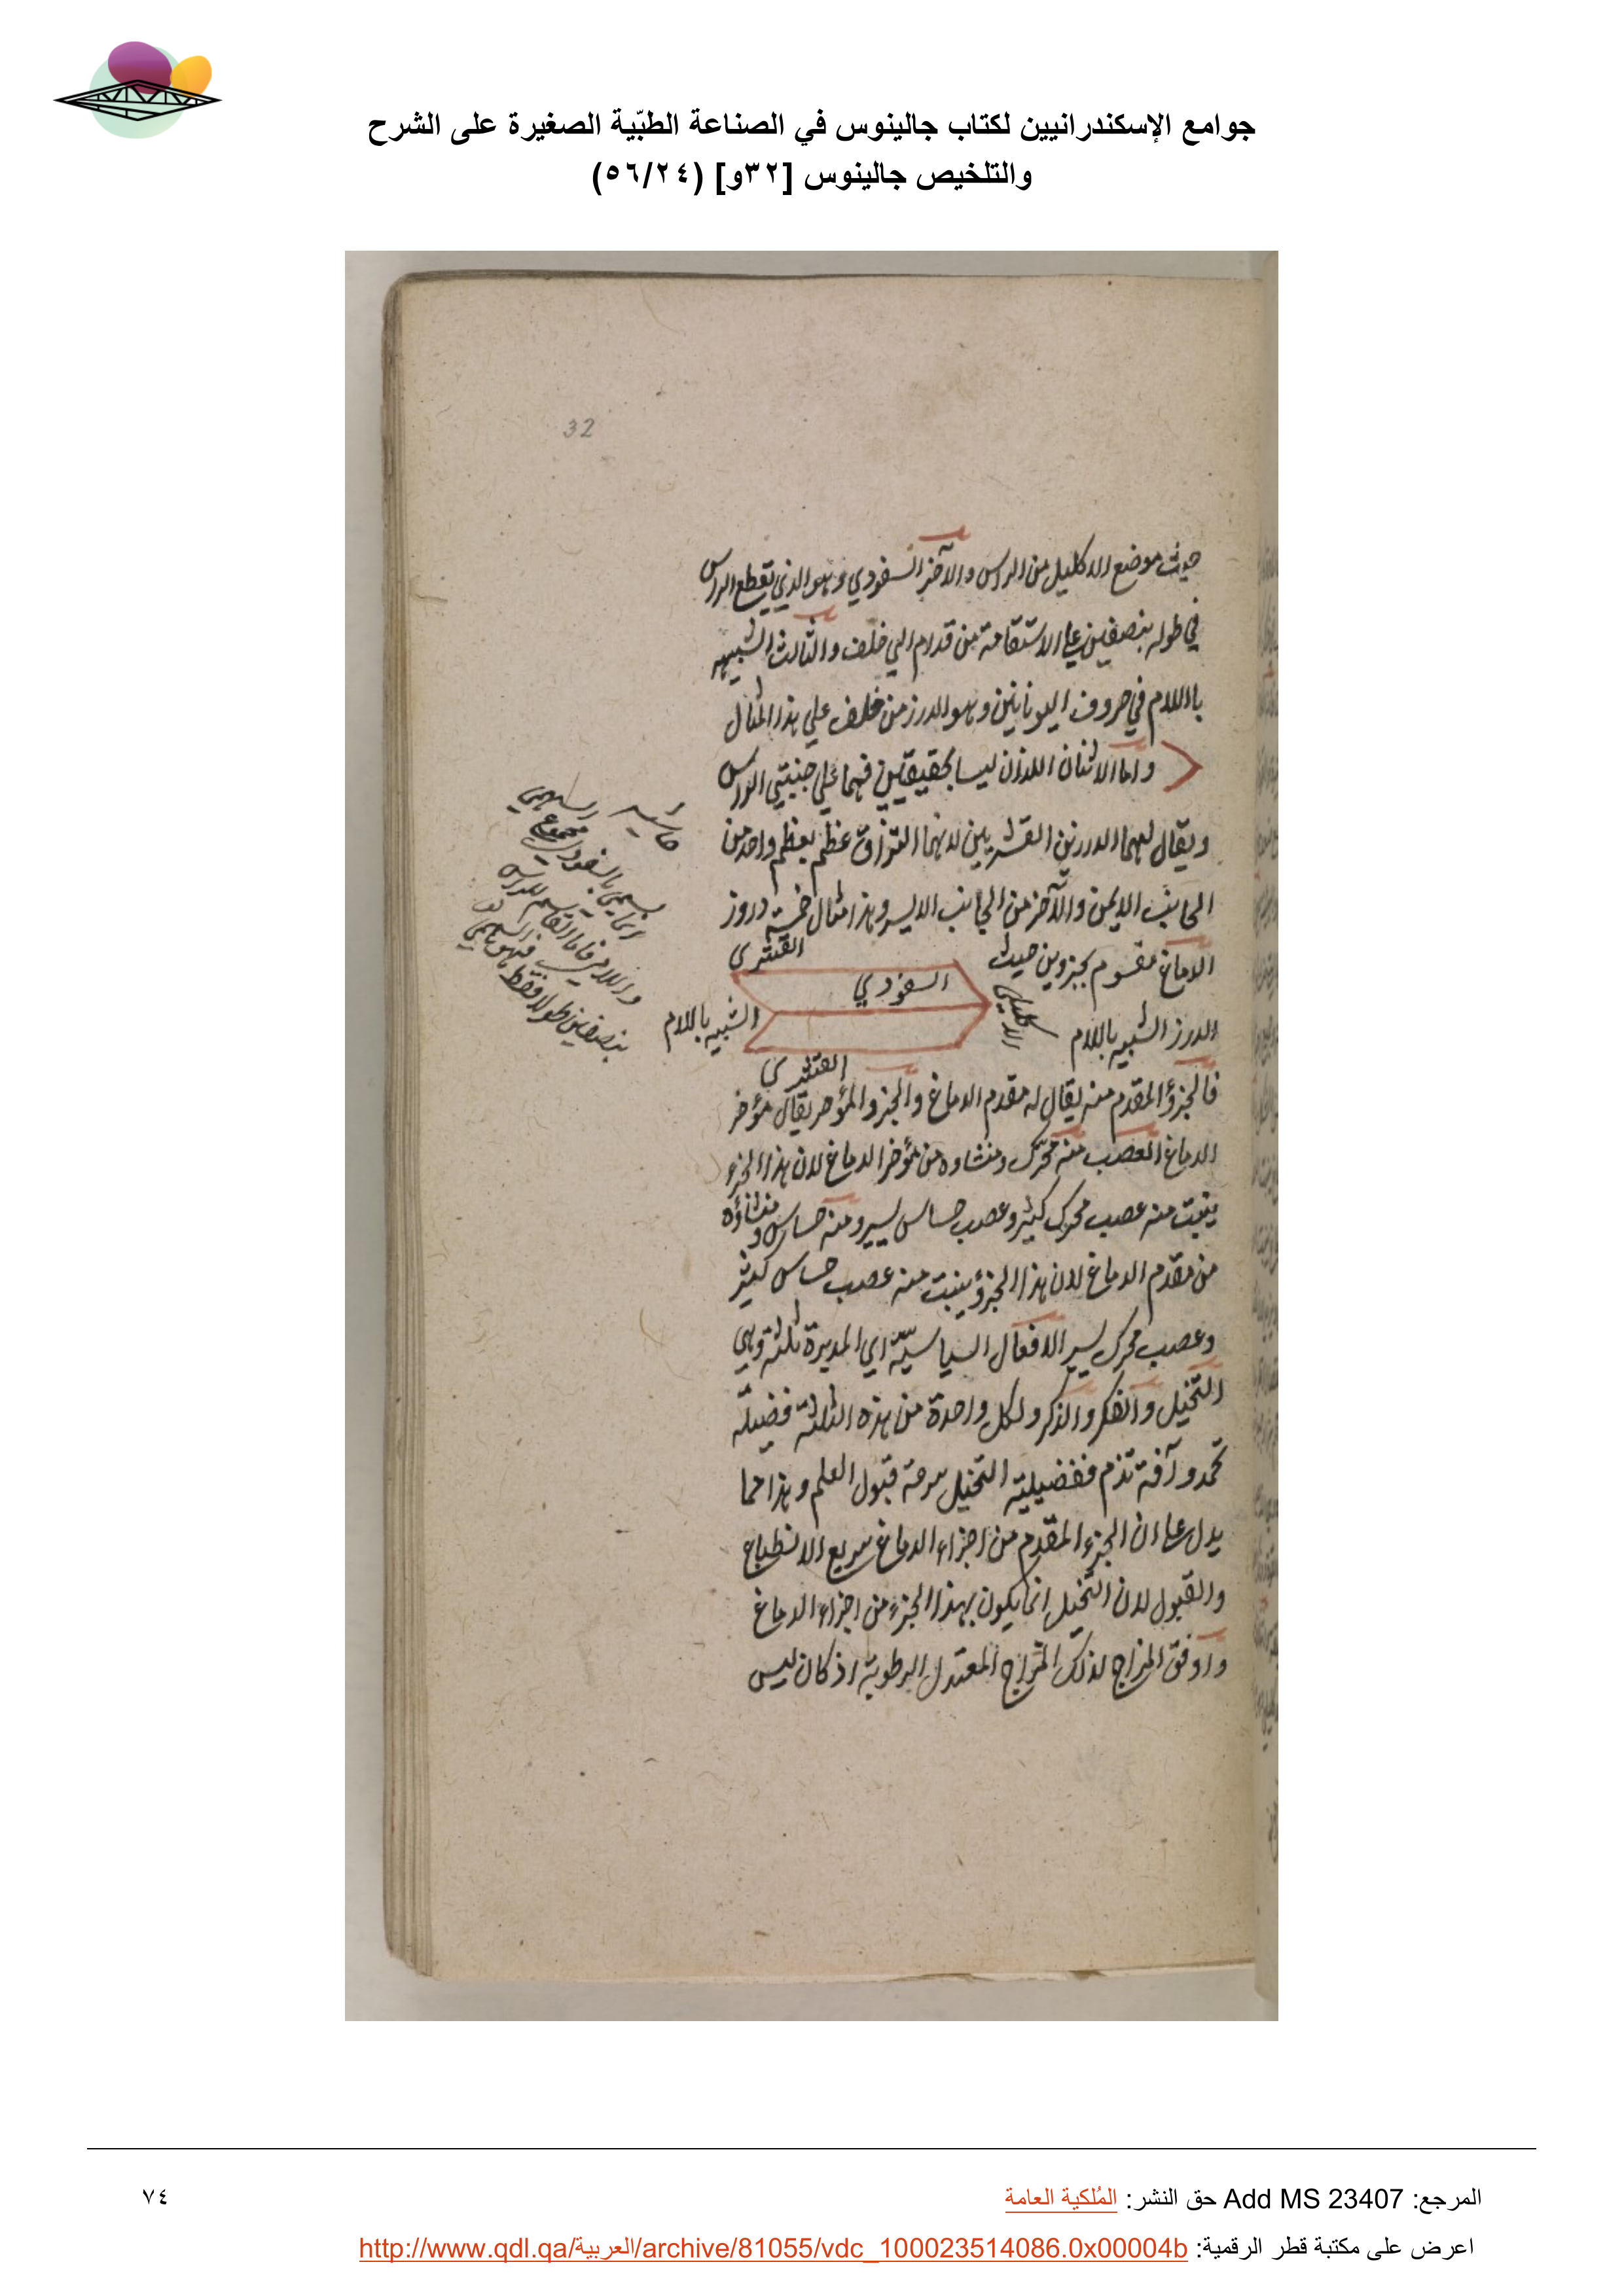 جوامع الإسكندرانيين لكتاب جالينوس في الصناعة الطبّية الصغيرة على الشرح
والتلخيص جالينوس [٣٢و] (٥٦/٢٤)
32
حيث موضع الاكليل من الراس والآخر السفودي وهو الذي يقطع الراس
في طوله بنصفين على الاستقامة من قدام الي خلف والثالث الشبيه
باللام في حروف اليونانيين وهو الدرز من خلف علي هذا المثال
واما الاثنان اللذان ليسا بحقيقيين فهما علي جنبتي الراس
ويقال لهما الدرزين القشريين لانهما التزاق عظم بعظم واحد من
الجانب الايمن والآخر من الجانب الايسر وهذا مثال خمسة دروز
القشري
الدماغ مقسوم بجزوين حيث
السفودي
الاكليلي
الشبيه باللام
الدرز الشبيه باللام
القشري
فالجزؤ المقدم منه يقال له مقدم الدماغ والجزو المؤخر يقال مؤخر
الدماغ العصب منه محرك ومنشاوه من مؤخر الدماغ لان هذا الجزء
ينبت منه عصب محرك كثير وعصب حساس يسير ومنه حساس ومنشاؤه
من مقدم الدماغ لان هذا الجزؤ ينبت منه عصب حساس كثير
وعصب محرك يسير الافعال السياسيّة اي المدبرة ثلثة وهي
التخيل والفكر والذكر ولكل واحدة من هذه الثلاثة فضيلة
تحمد وآفة تذم ففضيلة التخيل سرعة قبول العلم وهذا مما
يدل على ان الجزء المقدم من اجزاء الدماغ سريع الانطباع
والقبول لان التخيل انما يكون بهذا الجزء من اجزاء الدماغ
واوفق المزاج لذلك المزاج المعتدل الرطوبة اذ كان ليس
حاشيه السهمي
انما يسمي بالسفودي مجموع
واللامي فاما القاسم للراس
بنصفين طولا فقط
المرجع: Add MS 23407 حق النشر: المُلكية العامة
٧٤
اعرض على مكتبة قطر الرقمية: http://www.qdl.qa/العربية/archive/81055/vdc_100023514086.0x00004b